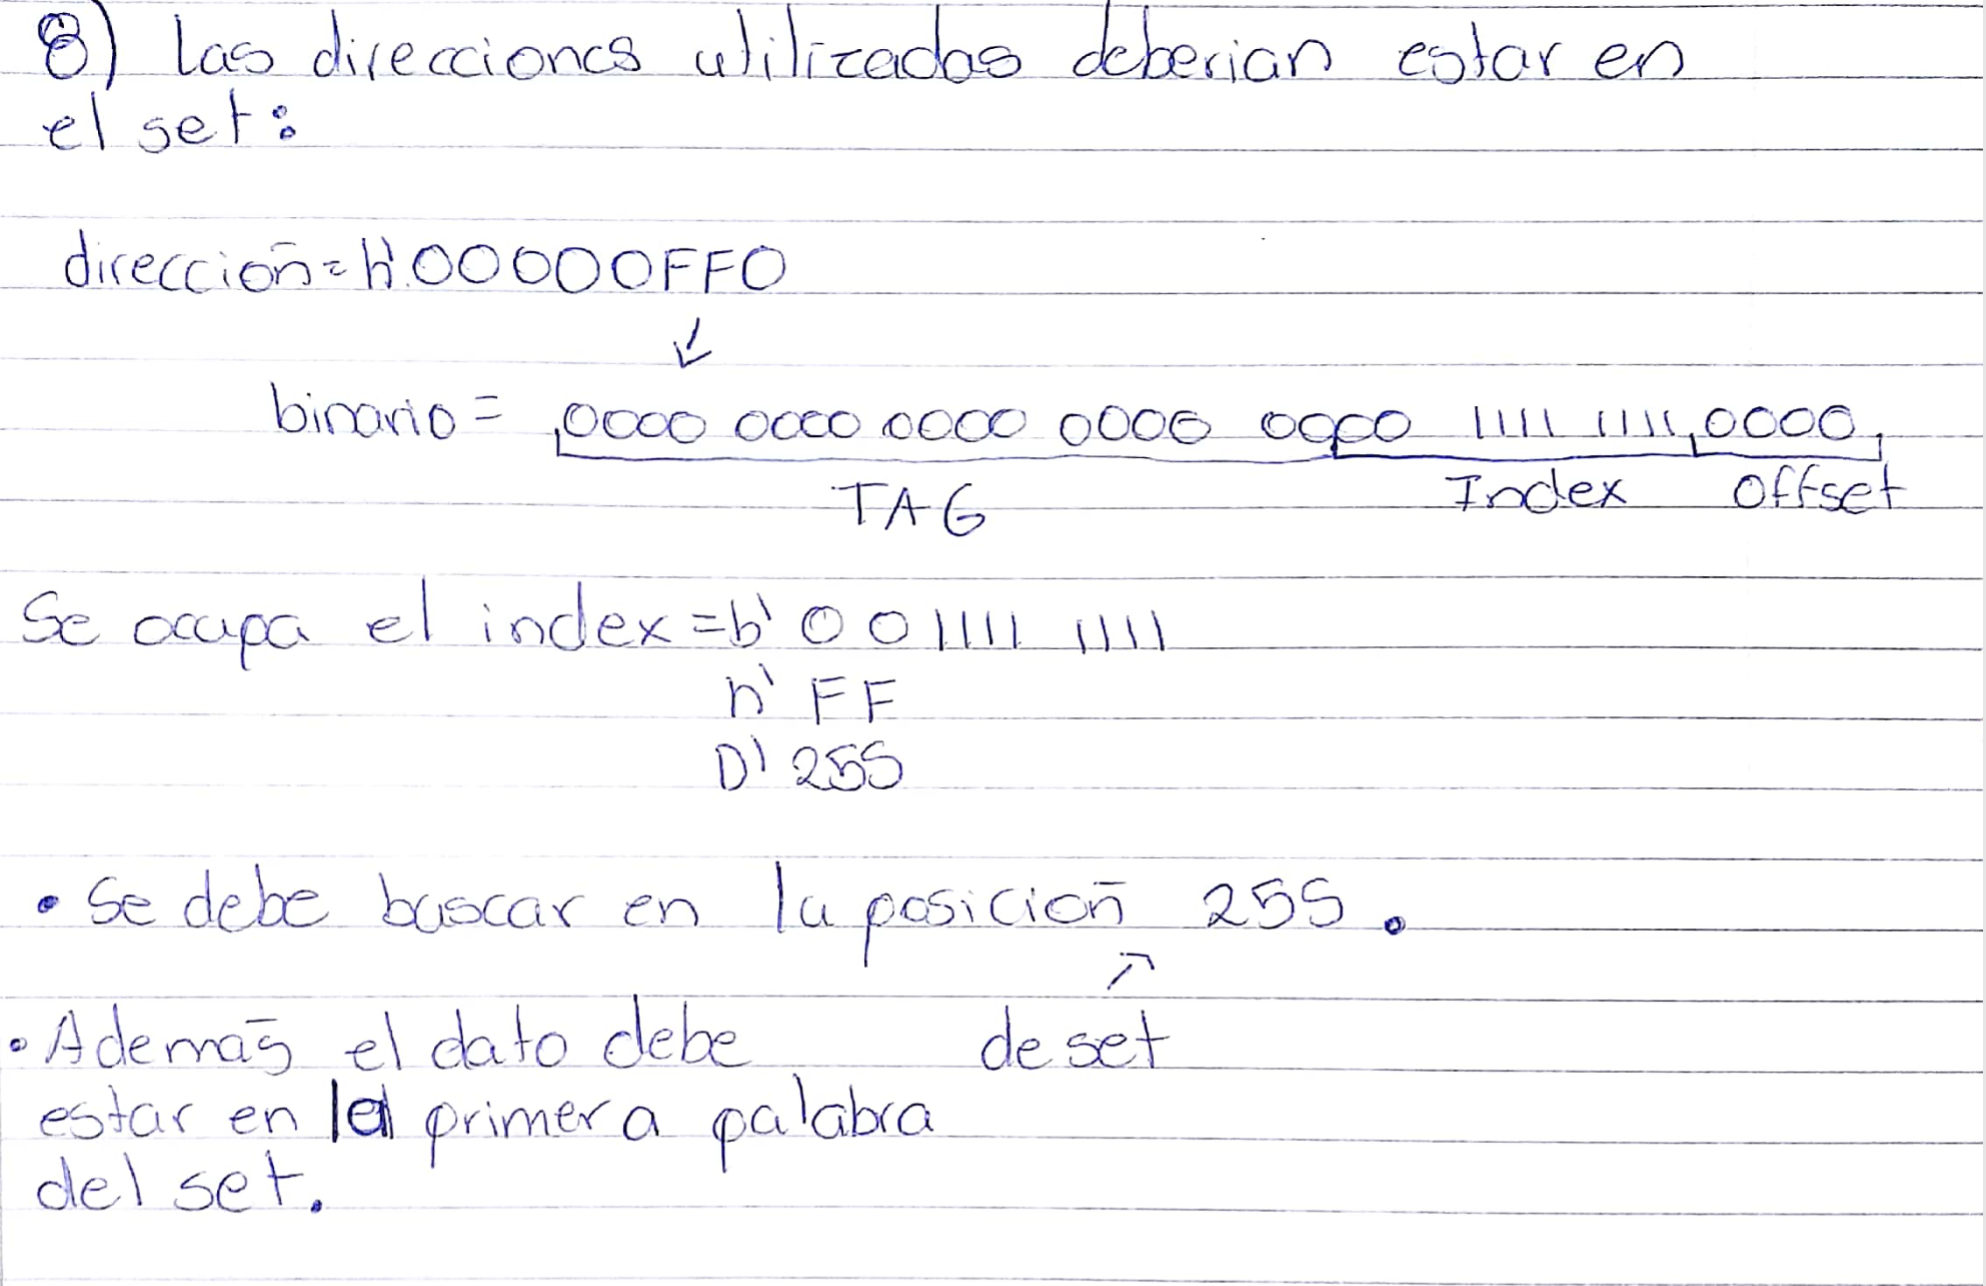 8) Las direcciones utilizadas deberian estar en
el set:
dirección = h'00000FF0
↓
binario = 0000 0000 0000 0000 0000 1111 1111 0000
TAG Index Offset
Se ocupa el index = b' 0 0 1111 1111
h' FF
D' 255
• Se debe buscar en la posición 255.
• Además el dato debe de set
estar en la primera palabra
del set.